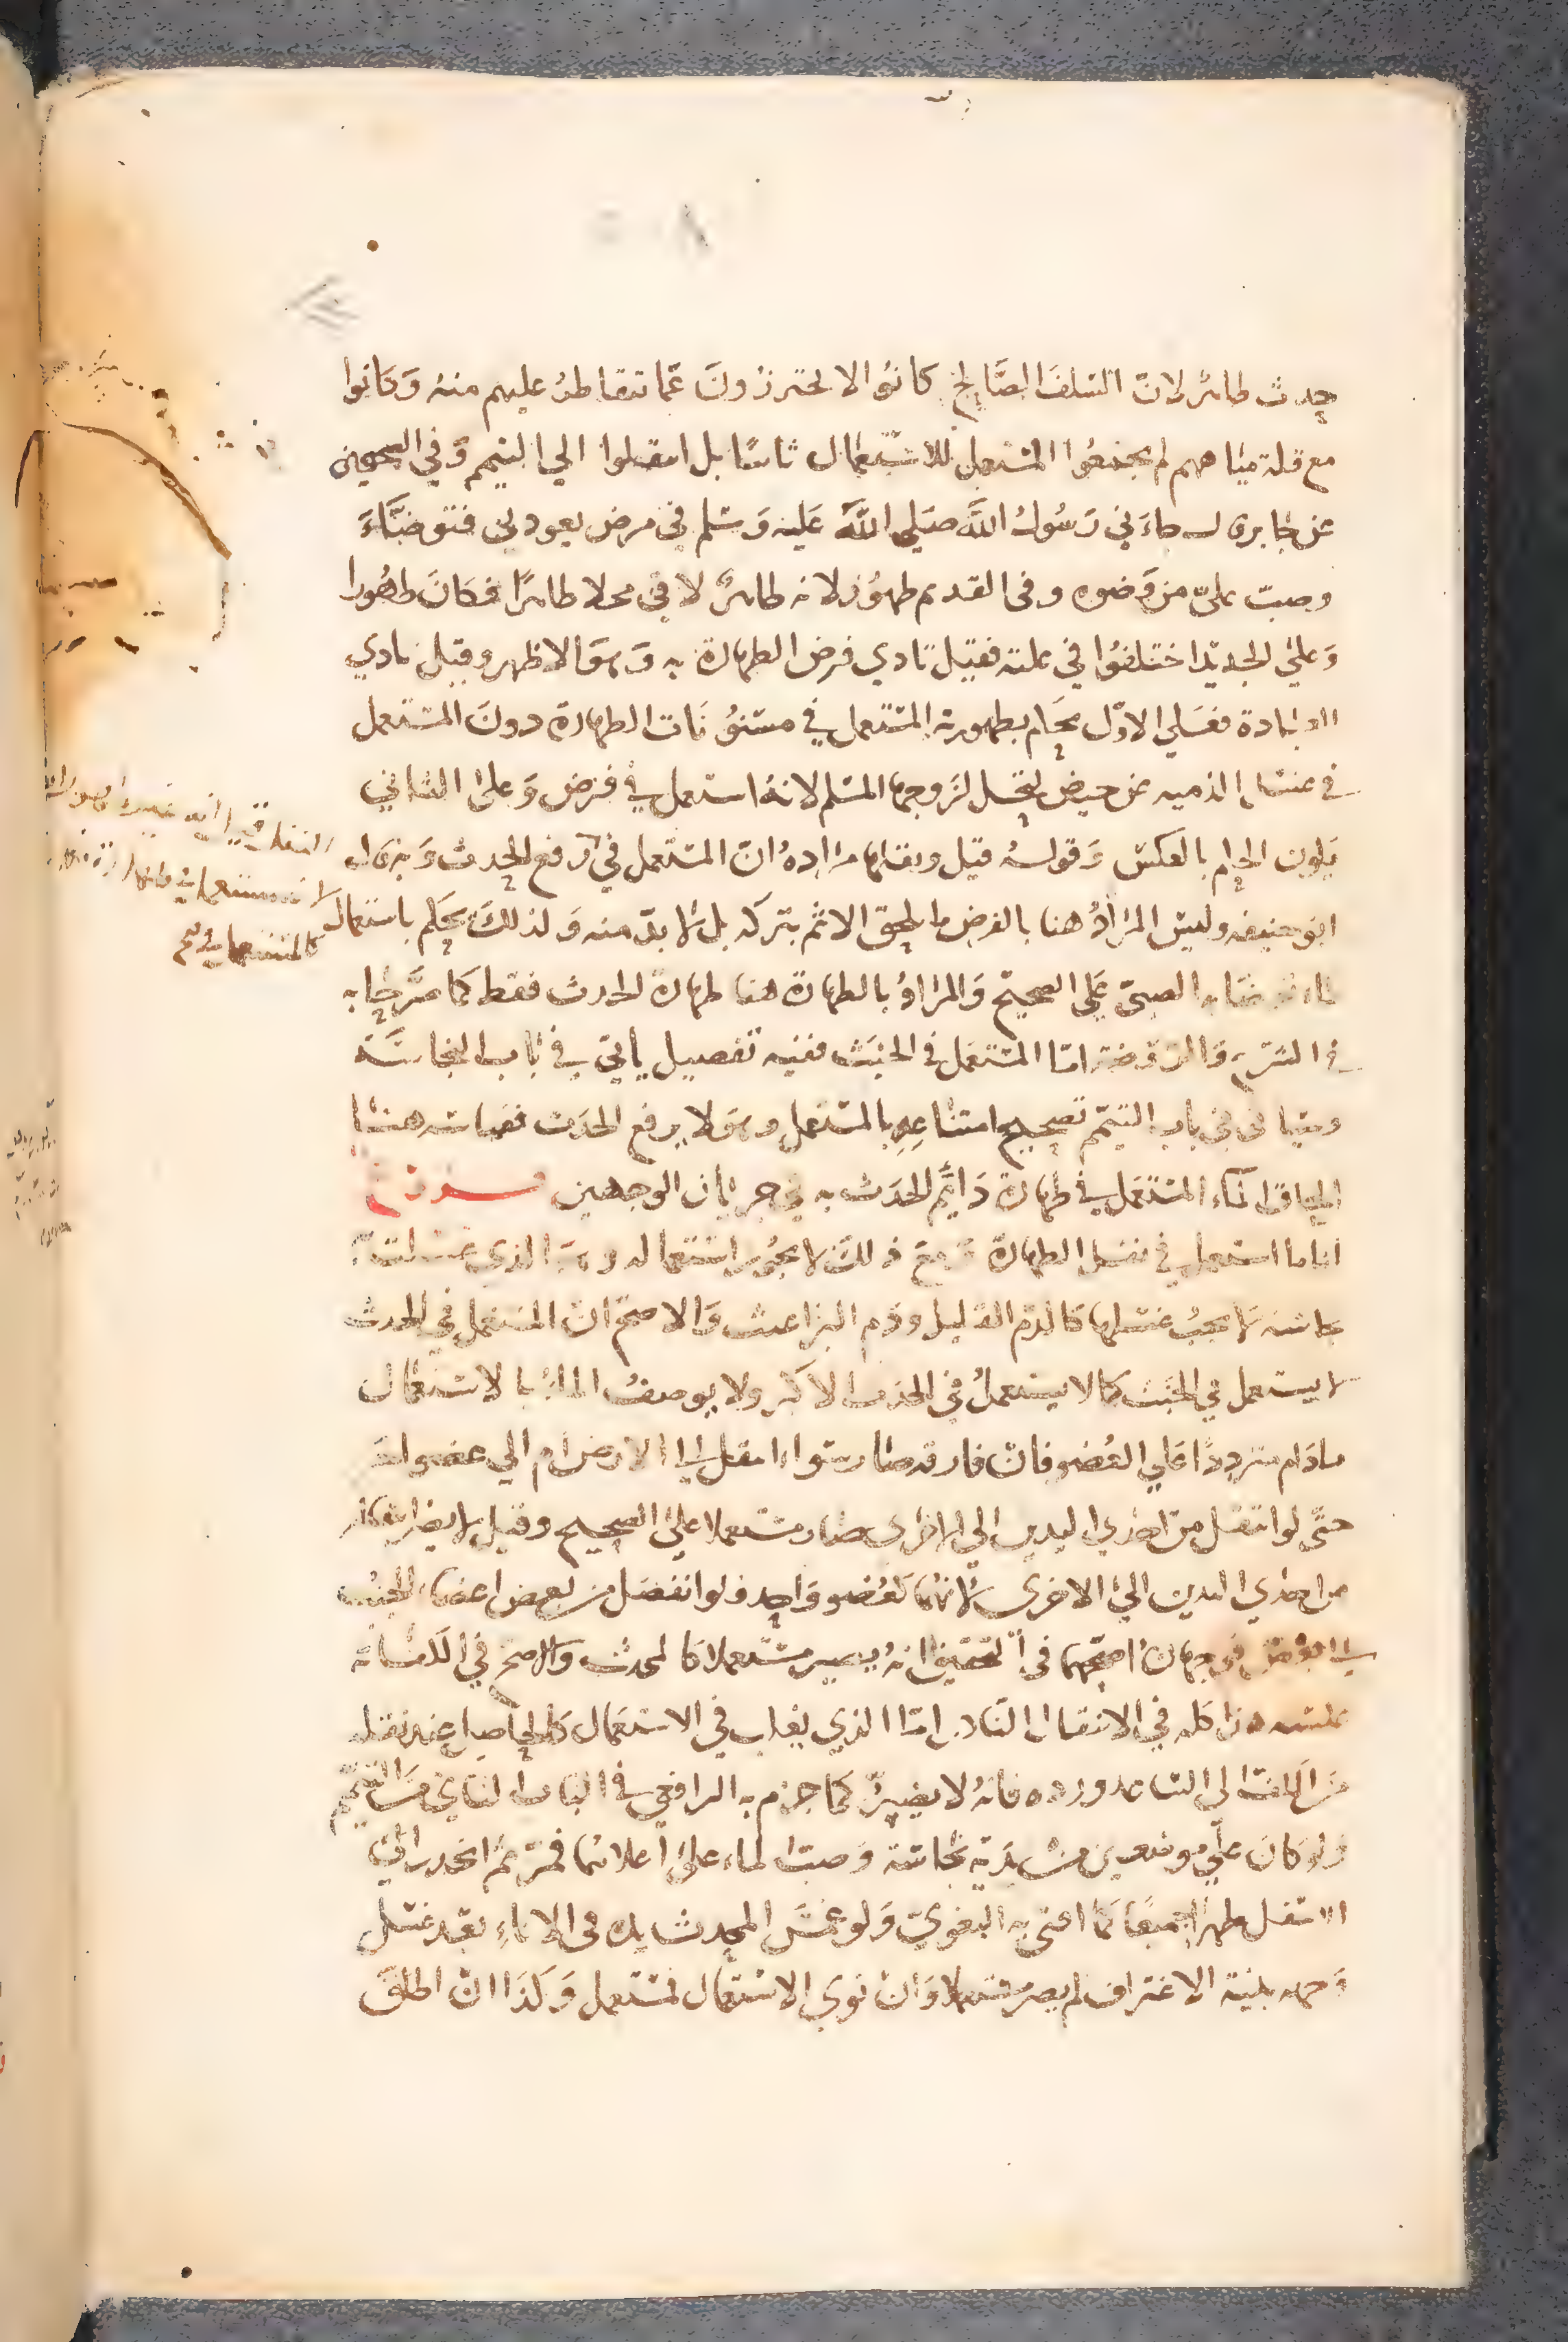 حدث طاهر لان السلف الصالح كانوا لا يحترزون عما تتقاطر عليهم منه وكانوا
مع قلة مياههم لم يجمعوا المستعمل للاستعمال ثانيا بل انتقلوا الي التيمم وفي الصحيحين
عن جابر قال جاءني رسول الله صلي الله عليه وسلم في مرض يعودني فتوضاء
وصب علي من وضوه وفي القديم طهور لانه طاهر لاقي محلا طاهرا فكان طهورا
وعلي الجديد اختلفوا في علته فقيل تادي فرض الطهارة به وهو الاظهر وقيل تادي
العبادة فعلي الاول يحكم بطهورية المستعمل في مسنونات الطهارة دون المستعمل
في غسل الذمية عن حيض لتحل لزوجها المسلم لانه استعمل في فرض وعلي الثاني
يكون الحكم بالعكس وقوله قيل ونفلها مراده ان المستعمل في رفع الحدث
ابو حنيفه وليس المراد هنا بالفرض ما يلحق الاثم بتركه بل لا بد منه ولذلك يحكم باستعمال
ماء توضاء به الصبي علي الصحيح والمراد بالطهارة هنا طهارة الحدث فقط كما صرحا به
في الشرح والروضة اما المستعمل في الخبث ففيه تفصيل ياتي في باب النجاسة
وسياتي في باب التيمم تصحيح امتناعه بالمستعمل وهو لا يرفع الحدث فقياسه هنا
الحاق الماء المستعمل في طهارة دايم الحدث به في جريان الوجهين فروع
لنا ما استعمل في نفل الطهارة ومع ذلك لا يجوز استعماله وهو الذي غسلت به
نجاسة لا يجب غسلها كالدم القليل ودم البراغيث والاصح ان المستعمل في الحدث
لا يستعمل في الخبث كما لا يستعمل في الحدث الاكبر ولا يوصف الماء بالاستعمال
مادام مترددا علي العضو فان فارقه صار سواء انتقل الي الارض ام الي عضو اخر
حتي لو انتقل من احدي اليدين الي الاخري صار مستعملا علي الصحيح وقيل لا يضر انتقاله
من احدي اليدين الي الاخري لانهما كعضو واحد ولو انفصل من بعض اعضاء الجنب
الي بعض فوجهان اصحهما في التحقيق انه يصير مستعملا كالمحدث والاصح في الكفاية
عكسه هذا كله في الانتقال النادر اما الذي يغلب في الاستعمال كالحاصل عند نقله
من الكف الي الساعد ورده فانه لا يضر كما جزم به الرافعي في الباب الثاني من التيمم
ولو كان علي موضعين من بدنه نجاسة وصب الماء علي اعلاهما فمر ثم انحدر الي
الاسفل طهرا جميعا كما افتي به البغوي ولو غمس المحدث يده في الاناء بعد غسل
وجهه بنية الاغتراف لم يصر مستعملا وان نوي الاستعمال فمستعمل وكذا ان اطلق